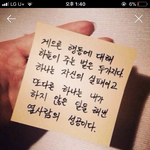 LG U+
오후 1:40
게으른 행동에 대해
하늘이 주는 벌은 두가지다.
하나는 자신의 실패이고
또다른 하나는 내가
하지 않은 일을 해낸
옆사람의 성공이다.